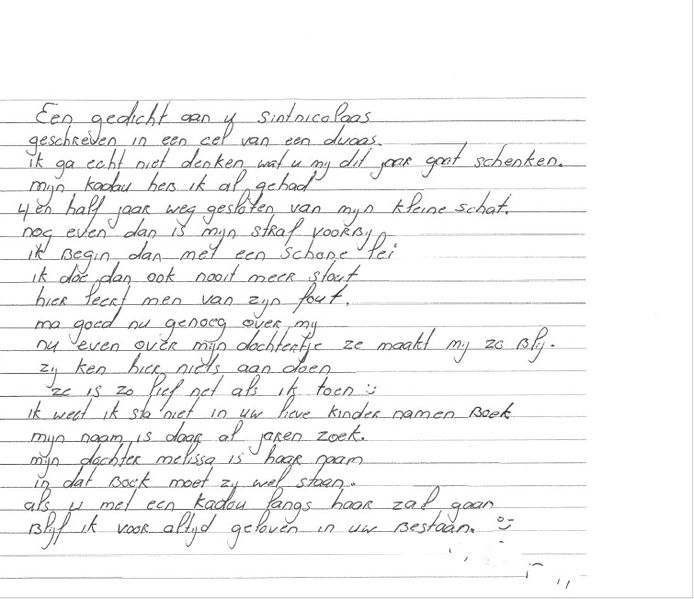 Een gedicht aan u Sintnicolaas
geschreven in een cel van een dwaas.
ik ga echt niet denken wat u my dit jaar gaat schenken.
mijn kadau heb ik al gehad
4 en half jaar weg gesloten van mijn kleine schat.
nog even dan is mijn straf voorby
ik Begin dan met een schone lei
ik doe dan ook nooit meer stout
hier leert men van zijn fout.
ma goed nu genoeg over my
nu even over mijn dochtertje ze maakt my zo Blij.
zy ken hier niets aan doen
ze is zo lief net als ik toen :)
ik weet ik sta niet in uw lieve kinder namen Boek
mijn naam is daar al jaren zoek.
mijn dochter melissa is haar naam
in dat Boek moet zy wel staan.
als u met een kadou langs haar zal gaan
Blijf ik voor altijd geloven in uw Bestaan. :)